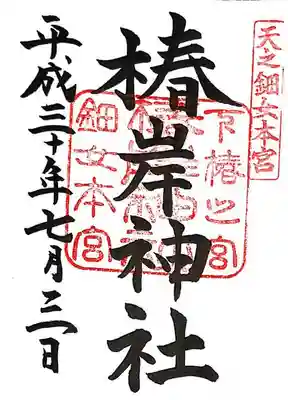 天之鈿女本宮
椿岸神社
下椿之宮
鈿女本宮
平成三十年七月三日